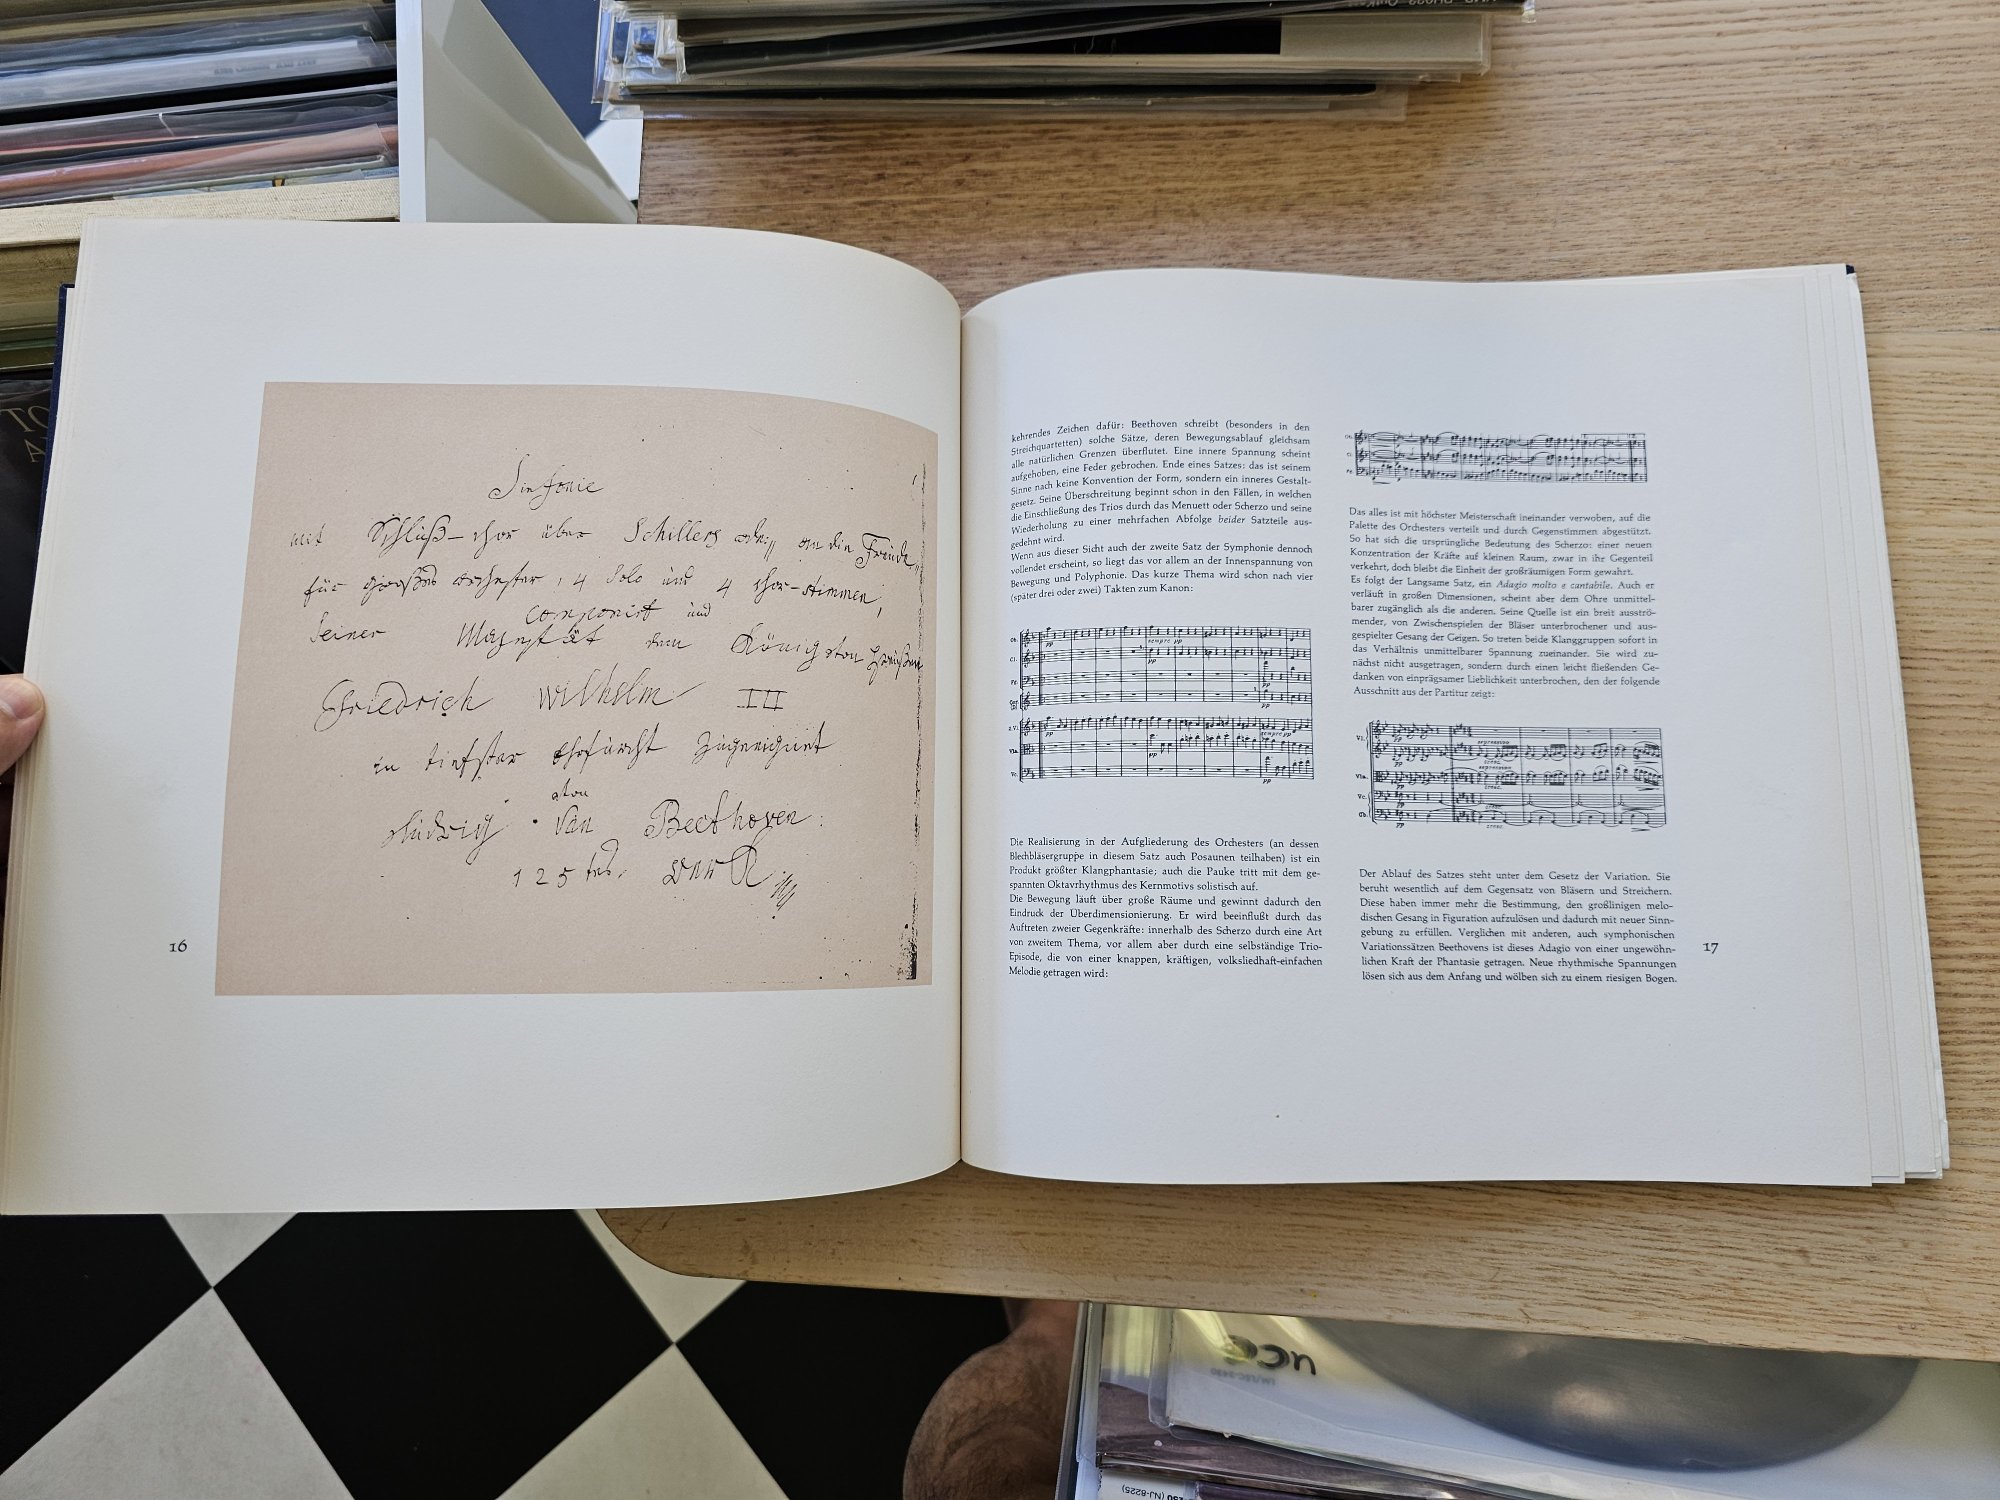 Sinfonie
mit Schluß-chor über Schillers ode: an die Freude
für großes orchester, 4 Solo und 4 chor-stimmen,
componirt und
Seiner Majestät dem König von Preußen
Friedrich Wilhelm III
in tiefster Ehrfurcht zugeeignet
von
Ludwig van Beethoven
125
16
kehrendes Zeichen dafür: Beethoven schreibt (besonders in den
Streichquartetten) solche Sätze, deren Bewegungsablauf gleichsam
alle natürlichen Grenzen überflutet. Eine innere Spannung scheint
aufgehoben, eine Feder gebrochen. Ende eines Satzes: das ist seinem
Sinne nach keine Konvention der Form, sondern ein inneres Gestalt-
gesetz. Seine Überschreitung beginnt schon in den Fällen, in welchen
die Einschließung des Trios durch das Menuett oder Scherzo und seine
Wiederholung zu einer mehrfachen Abfolge beider Satzteile aus-
gedehnt wird.
Wenn aus dieser Sicht auch der zweite Satz der Symphonie dennoch
vollendet erscheint, so liegt das vor allem an der Innenspannung von
Bewegung und Polyphonie. Das kurze Thema wird schon nach vier
(später drei oder zwei) Takten zum Kanon:
Ob.
sempre pp
Cl.
pp
Fg.
pp
pp
2.Vl.
pp
sempre pp
Vla.
pp
Vc.
pp
Die Realisierung in der Aufgliederung des Orchesters (an dessen
Blechbläsergruppe in diesem Satz auch Posaunen teilhaben) ist ein
Produkt größter Klangphantasie; auch die Pauke tritt mit dem ge-
spannten Oktavrhythmus des Kernmotivs solistisch auf.
Die Bewegung läuft über große Räume und gewinnt dadurch den
Eindruck der Überdimensionierung. Er wird beeinflußt durch das
Auftreten zweier Gegenkräfte: innerhalb des Scherzo durch eine Art
von zweitem Thema, vor allem aber durch eine selbständige Trio-
Episode, die von einer knappen, kräftigen, volksliedhaft-einfachen
Melodie getragen wird:
Ob.
Cl.
Fg.
Das alles ist mit höchster Meisterschaft ineinander verwoben, auf die
Palette des Orchesters verteilt und durch Gegenstimmen abgestützt.
So hat sich die ursprüngliche Bedeutung des Scherzo: einer neuen
Konzentration der Kräfte auf kleinen Raum, zwar in ihr Gegenteil
verkehrt, doch bleibt die Einheit der großräumigen Form gewahrt.
Es folgt der Langsame Satz, ein Adagio molto e cantabile. Auch er
verläuft in großen Dimensionen, scheint aber dem Ohre unmittel-
barer zugänglich als die anderen. Seine Quelle ist ein breit ausströ-
mender, von Zwischenspielen der Bläser unterbrochener und aus-
gespielter Gesang der Geigen. So treten beide Klanggruppen sofort in
das Verhältnis unmittelbarer Spannung zueinander. Sie wird zu-
nächst nicht ausgetragen, sondern durch einen leicht fließenden Ge-
danken von einprägsamer Lieblichkeit unterbrochen, den der folgende
Ausschnitt aus der Partitur zeigt:
Vl.
espressivo
pp
cresc.
espressivo
Vla.
pp
cresc.
Vc.
cresc.
Cb.
pp
cresc.
Der Ablauf des Satzes steht unter dem Gesetz der Variation. Sie
beruht wesentlich auf dem Gegensatz von Bläsern und Streichern.
Diese haben immer mehr die Bestimmung, den großlinigen melo-
dischen Gesang in Figuration aufzulösen und dadurch mit neuer Sinn-
gebung zu erfüllen. Verglichen mit anderen, auch symphonischen
Variationssätzen Beethovens ist dieses Adagio von einer ungewöhn-
lichen Kraft der Phantasie getragen. Neue rhythmische Spannungen
lösen sich aus dem Anfang und wölben sich zu einem riesigen Bogen.
17
(NJ-8225)